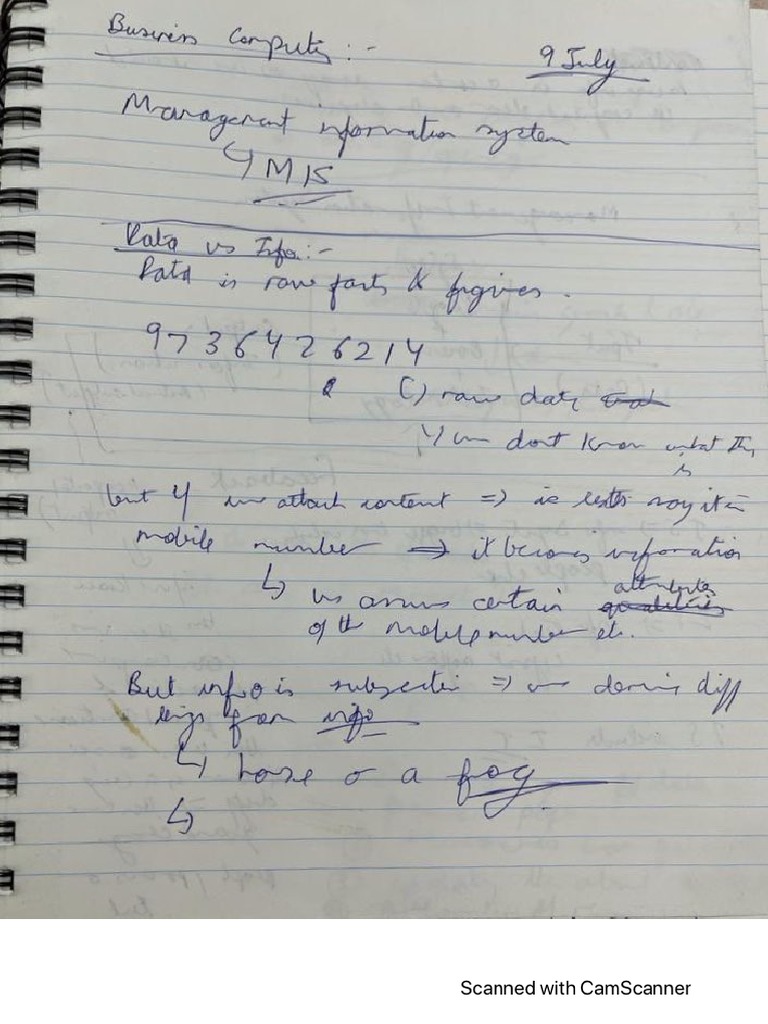 Business Computing :-
9 July
Management information system
↳ MIS
Data vs Info :-
Data is raw facts & figures.
9736426214
↳ raw data
↳ we dont know what this is
but if we attach context => ie lets say its
mobile number => it becomes information
↳ us assume certain attributes
of the mobile number etc.
But info is subjective => we derive diff
things from info
↳ horse or a frog
↳
Scanned with CamScanner